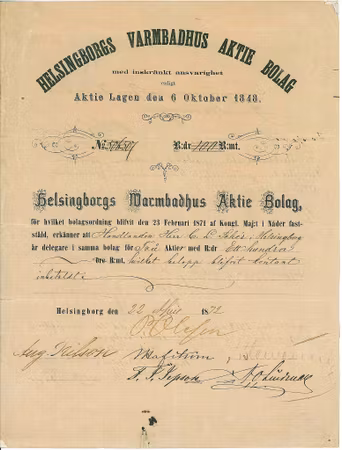 HELSINGBORGS VARMBADHUS AKTIE BOLAG
med inskränkt ansvarighet
enligt
Aktie Lagen den 6 Oktober 1848.
R:dr 100 R:mt.
Helsingborgs Varmbadhus Aktie Bolag,
för hvilket bolagsordning blifvit den 23 Februari 1871 af Kongl. Maj:t i Nåder fast-
ställd, erkänner att Handlanden Herr C. D. Helsingborg
är delegare i samma bolag för Två Aktier med R:dr Ett hundra
Öre R:mt, hvilket belopp blifvit kontant
inbetaldt.
Helsingborg den 22 1872
P. Olsen
Aug. Nilson